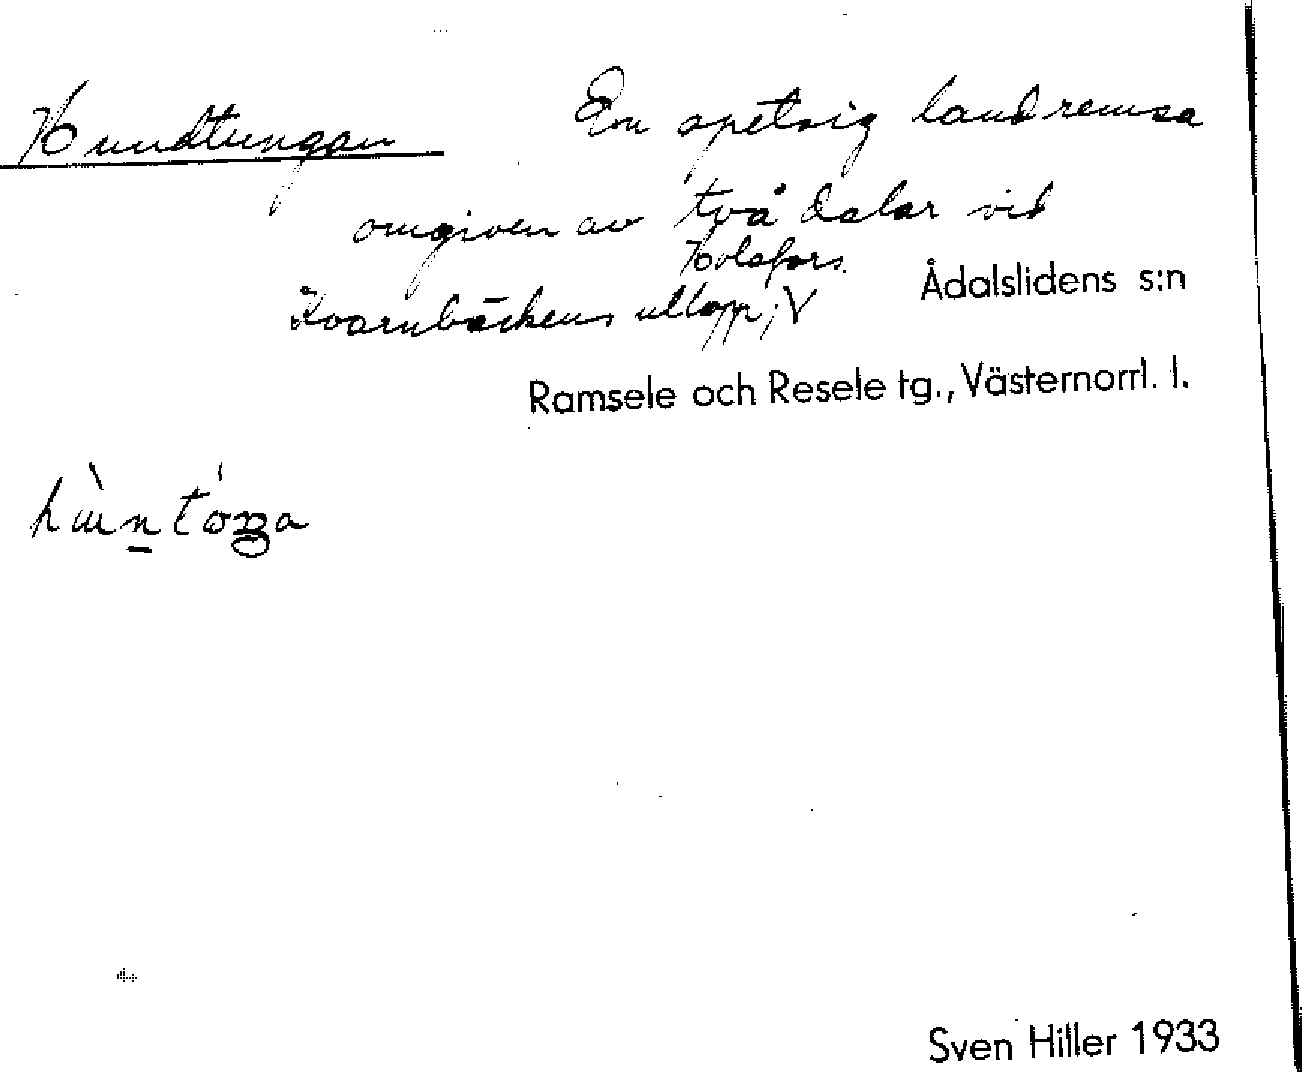 Hundtungan En spetsig landremsa
omgiven av två dalar vid
Holafors.
Kvarnbäckens utlopp; V
Ådalslidens s:n
Ramsele och Resele tg., Västernorrl. l.
Sven Hiller 1933